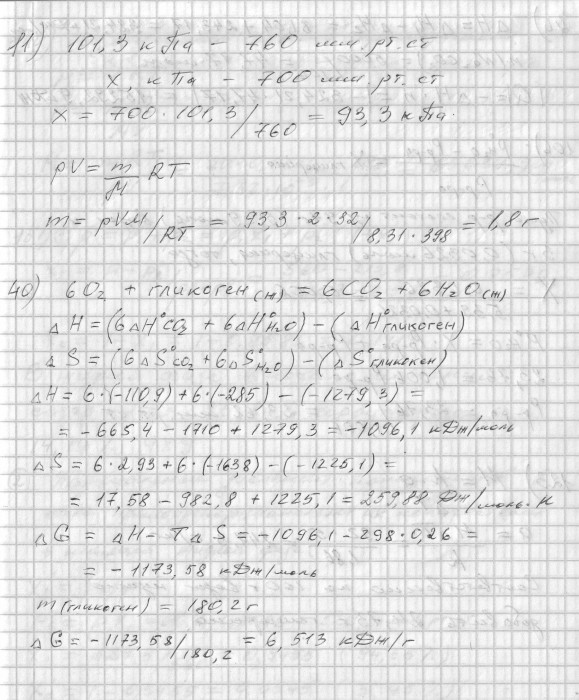 11) 101,3 кПа – 760 мм.рт.ст
X, кПа – 700 мм.рт.ст
X = 700·101,3/760 = 93,3 кПа.
pV = m/M RT
m = pVM/RT = 93,3·2·32/8,31·398 = 1,8 г
40) 6O₂ + гликоген(т) = 6CO₂ + 6H₂O(т)
ΔH = (6ΔH°CO₂ + 6ΔH°H₂O) – (ΔH°гликоген)
ΔS = (6ΔS°CO₂ + 6ΔS°H₂O) – (ΔS°гликокен)
ΔH = 6·(-110,9) + 6·(-285) – (-1279,3) =
= -665,4 – 1710 + 1279,3 = -1096,1 кДж/моль
ΔS = 6·2,93 + 6·(-163,8) – (-1225,1) =
= 17,58 – 982,8 + 1225,1 = 259,88 Дж/моль·К
ΔG = ΔH – TΔS = -1096,1 – 298·0,26 =
= -1173,58 кДж/моль
m(гликоген) = 180,2 г
ΔG = -1173,58/180,2 = 6,513 кДж/г